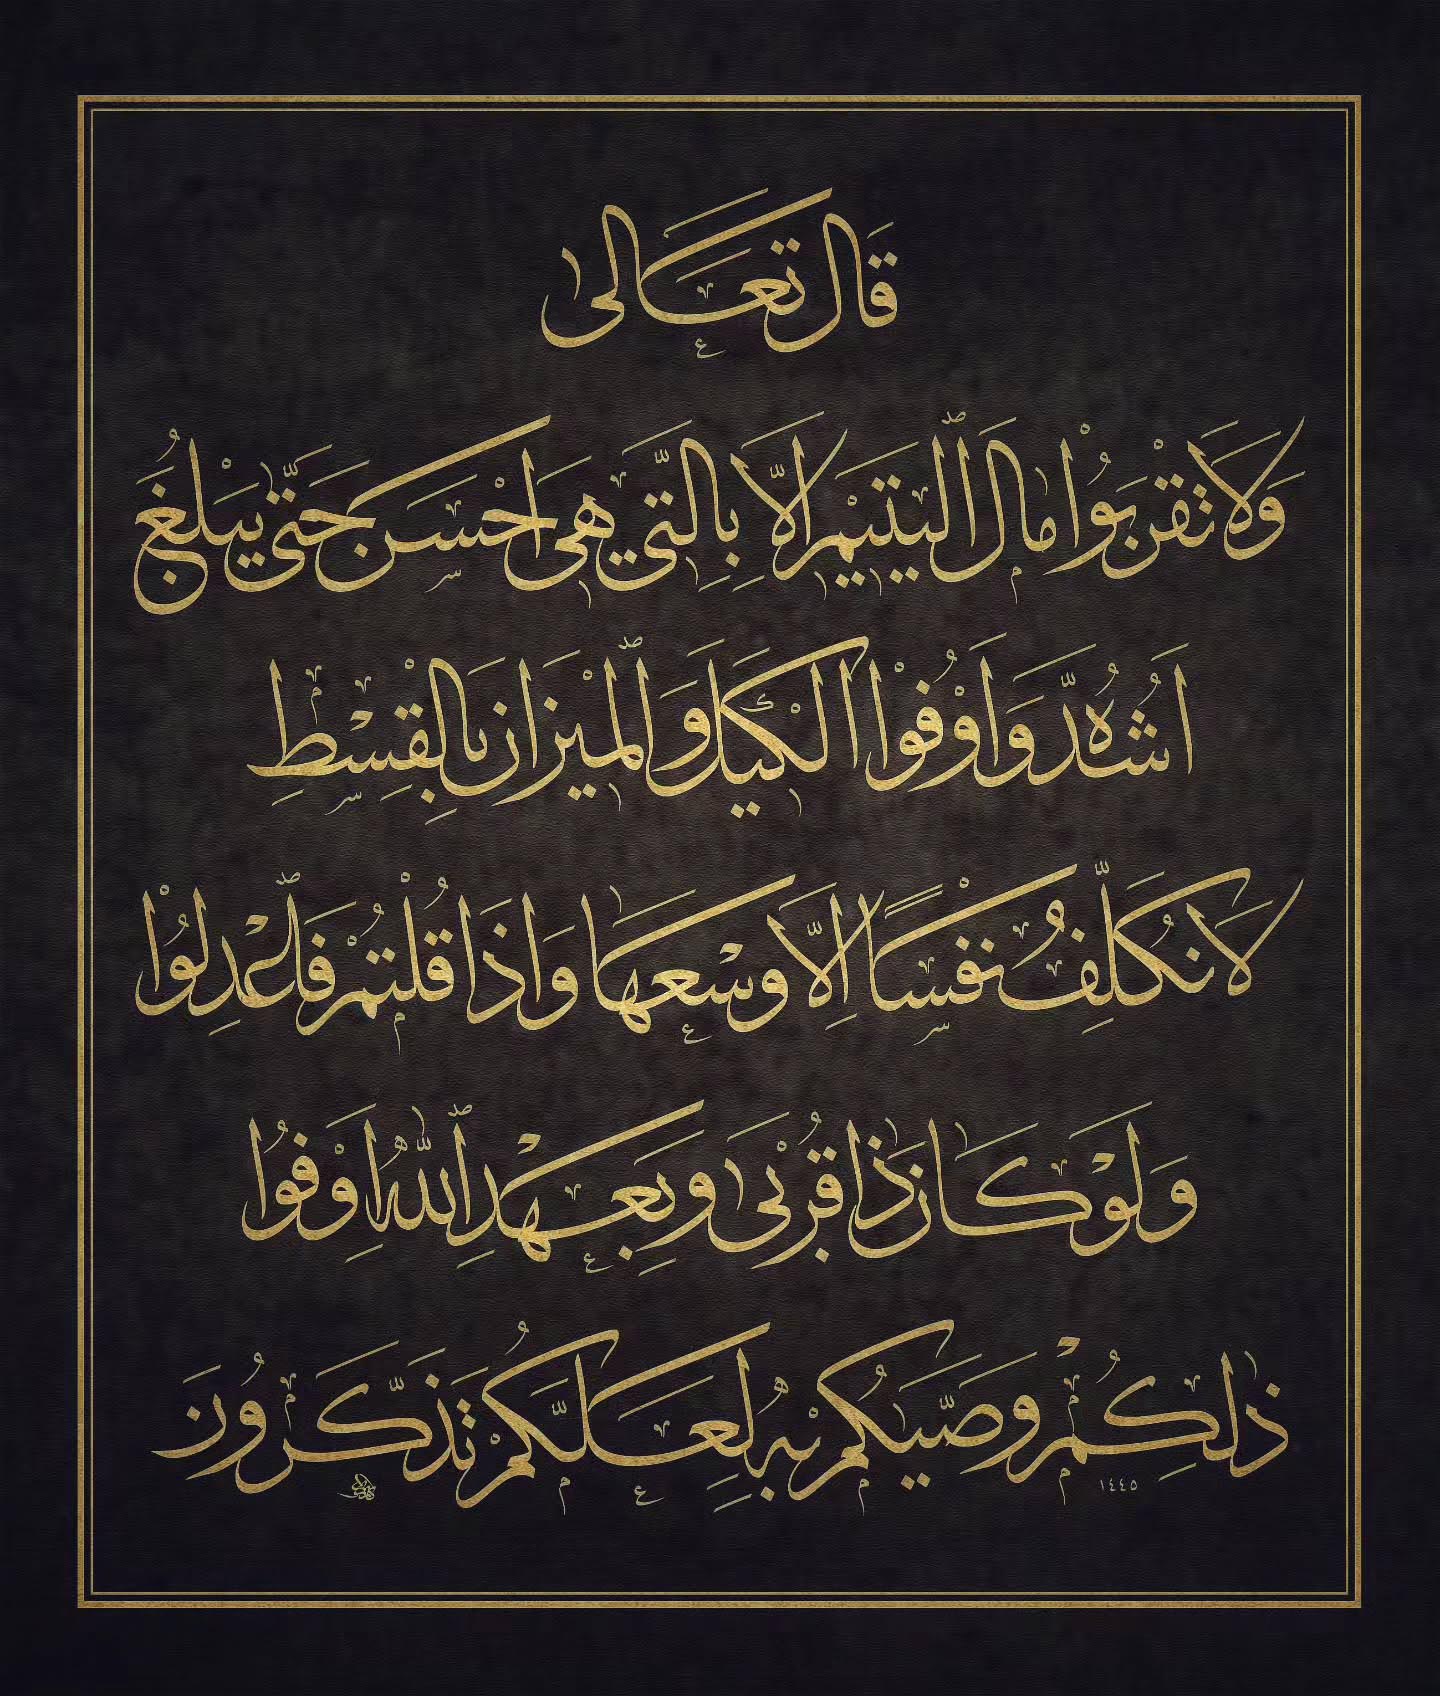 قَالَ تَعَالى
وَلَا تَقْرَبُوْا مَالَ ٱلْيَتِيْمِ اِلَّا بِالَّتِي هِيَ اَحْسَنُ حَتَّى يَبْلُغَ
اَشُدَّهُ وَاَوْفُوْا الْكَيْلَ وَٱلْمِيْزَانَ بِالْقِسْطِ
لَا نُكَلِّفُ نَفْسًا اِلَّا وُسْعَهَا وَاِذَا قُلْتُمْ فَٱعْدِلُوْا
وَلَوْ كَانَ ذَا قُرْبَى وَبِعَهْدِ ٱللّٰهِ اَوْفُوا
ذٰلِكُمْ وَصَّيكُمْ بِهِ لَعَلَّكُمْ تَذَكَّرُونَ
١٤٤٥